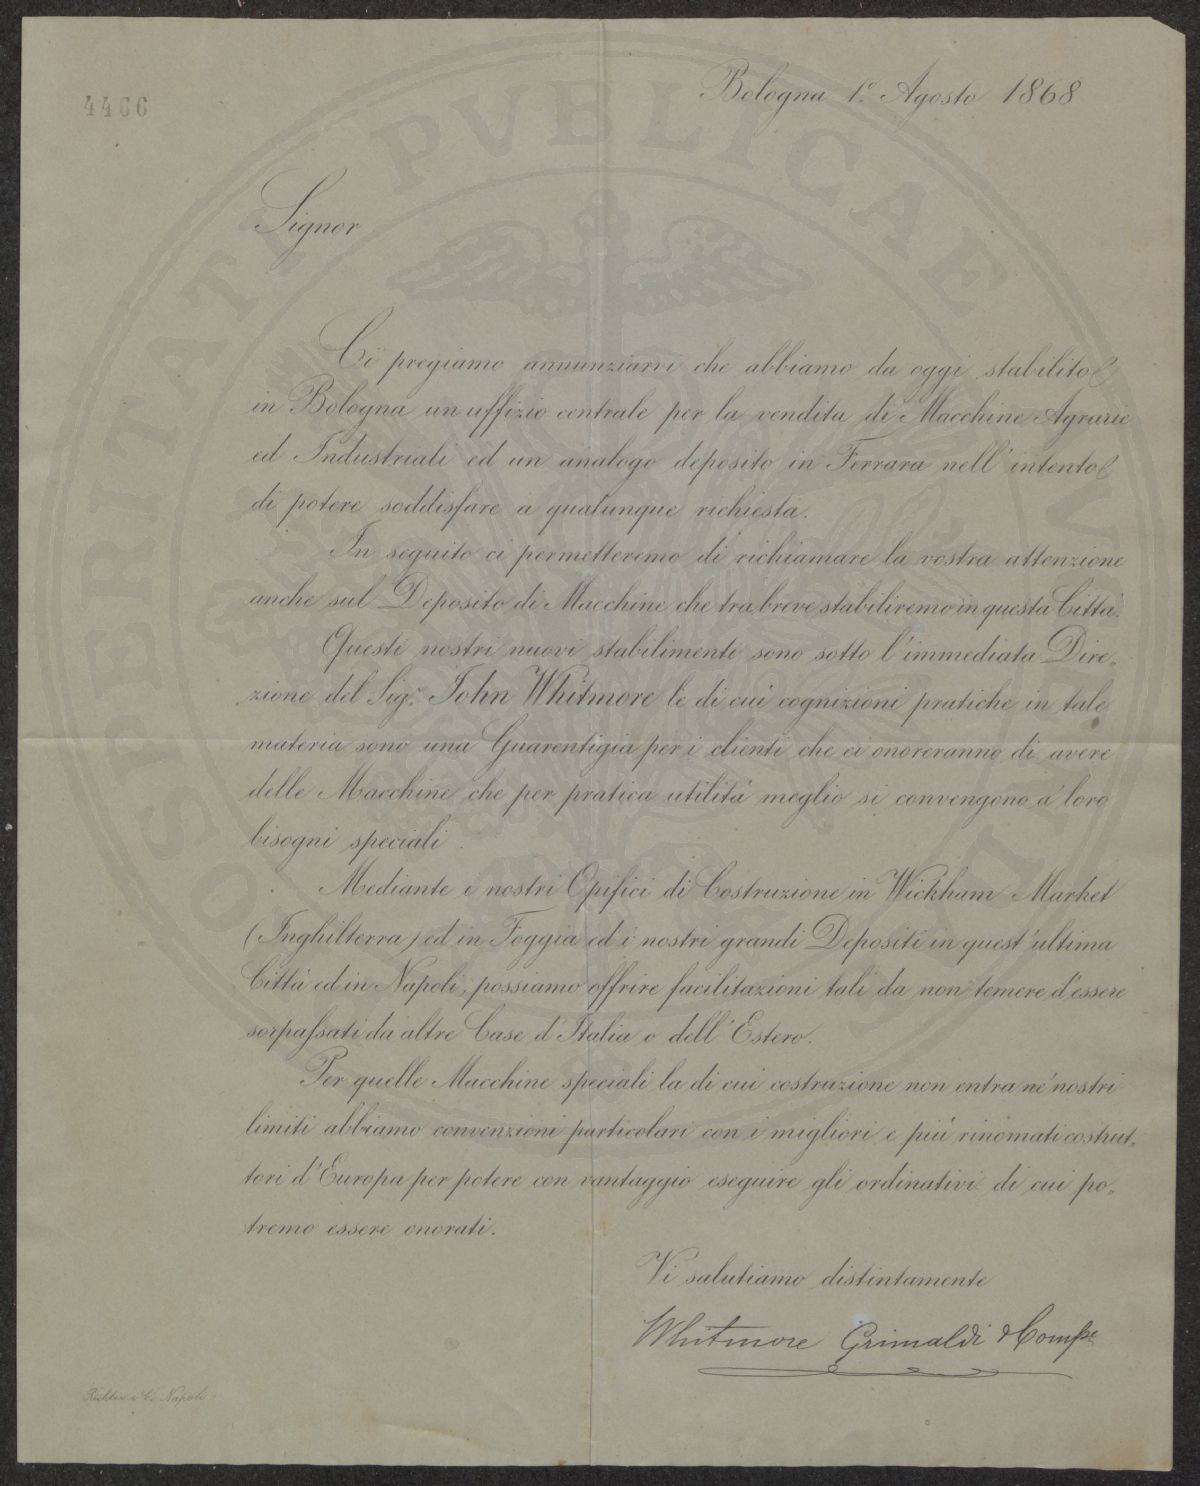 4466
Bologna 1º Agosto 1868
Signor
Ci pregiamo annunziarvi che abbiamo da oggi stabilito
in Bologna un uffizio centrale per la vendita di Macchine Agrarie
ed Industriali ed un analogo deposito in Ferrara nell'intento
di potere soddisfare a qualunque richiesta.
In seguito ci permetteremo di richiamare la vostra attenzione
anche sul Deposito di Macchine che tra breve stabiliremo in questa Città.
Questi nostri nuovi stabilimenti sono sotto l'immediata Dire-
zione del Sigr. John Whitmore le di cui cognizioni pratiche in tale
materia sono una Guarentigia per i clienti che ci onoreranno di avere
delle Macchine che per pratica utilità meglio si convengono a' loro
bisogni speciali.
Mediante i nostri Opifici di Costruzione in Wickham Market
(Inghilterra) ed in Foggia ed i nostri grandi Depositi in quest'ultima
Città ed in Napoli, possiamo offrire facilitazioni tali da non temere d'essere
sorpassati da altre Case d'Italia o dell'Estero.
Per quelle Macchine speciali la di cui costruzione non entra ne' nostri
limiti abbiamo convenzioni particolari con i migliori e più rinomati costrut-
tori d'Europa per potere con vantaggio eseguire gli ordinativi di cui po-
tremo essere onorati.
Vi salutiamo distintamente
Whitmore Grimaldi & Compe
Richter e C. Napoli
PROSPERITATE PVBLICAE